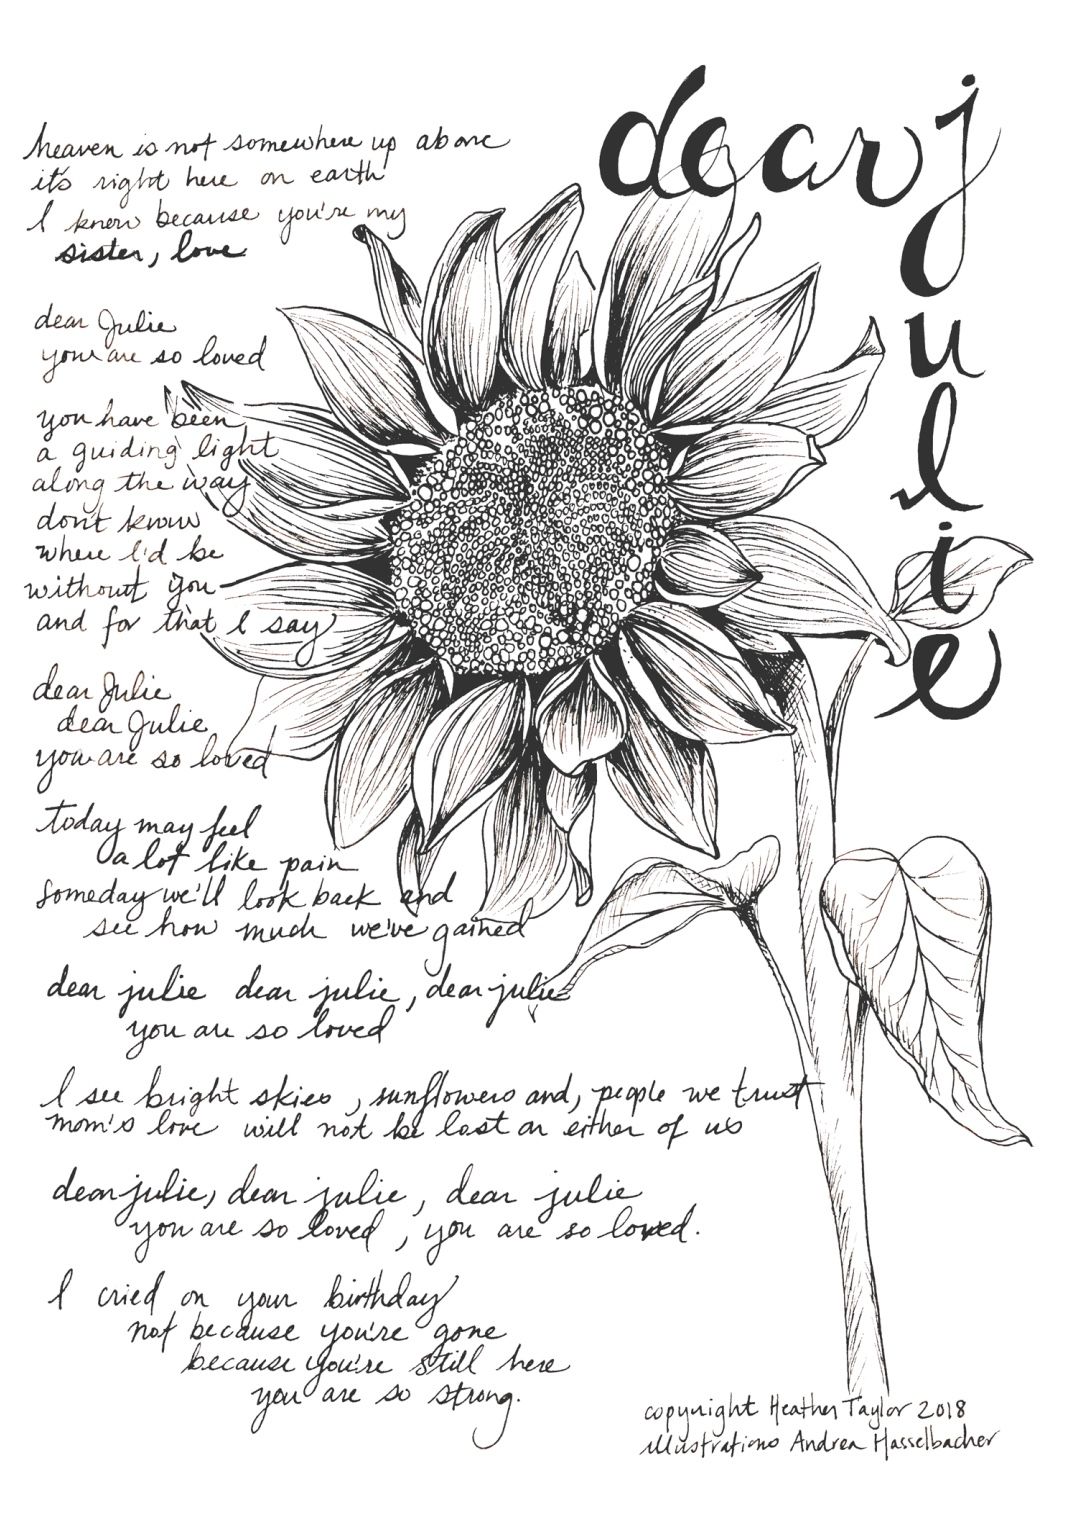 dear julie
heaven is not somewhere up above
it's right here on earth
I know because you're my
sister, love
dear Julie
you are so loved
you have been
a guiding light
along the way
don't know
where I'd be
without you
and for that I say
dear Julie
dear Julie
you are so loved
today may feel
a lot like pain
someday we'll look back and
see how much we've gained
dear julie dear julie, dear julie
you are so loved
I see bright skies, sunflowers and, people we trust
mom's love will not be lost on either of us
dear julie, dear julie, dear julie
you are so loved, you are so loved.
I cried on your birthday
not because you're gone
because you're still here
you are so strong.
copyright Heather Taylor 2018
illustrations Andrea Hasselbacher